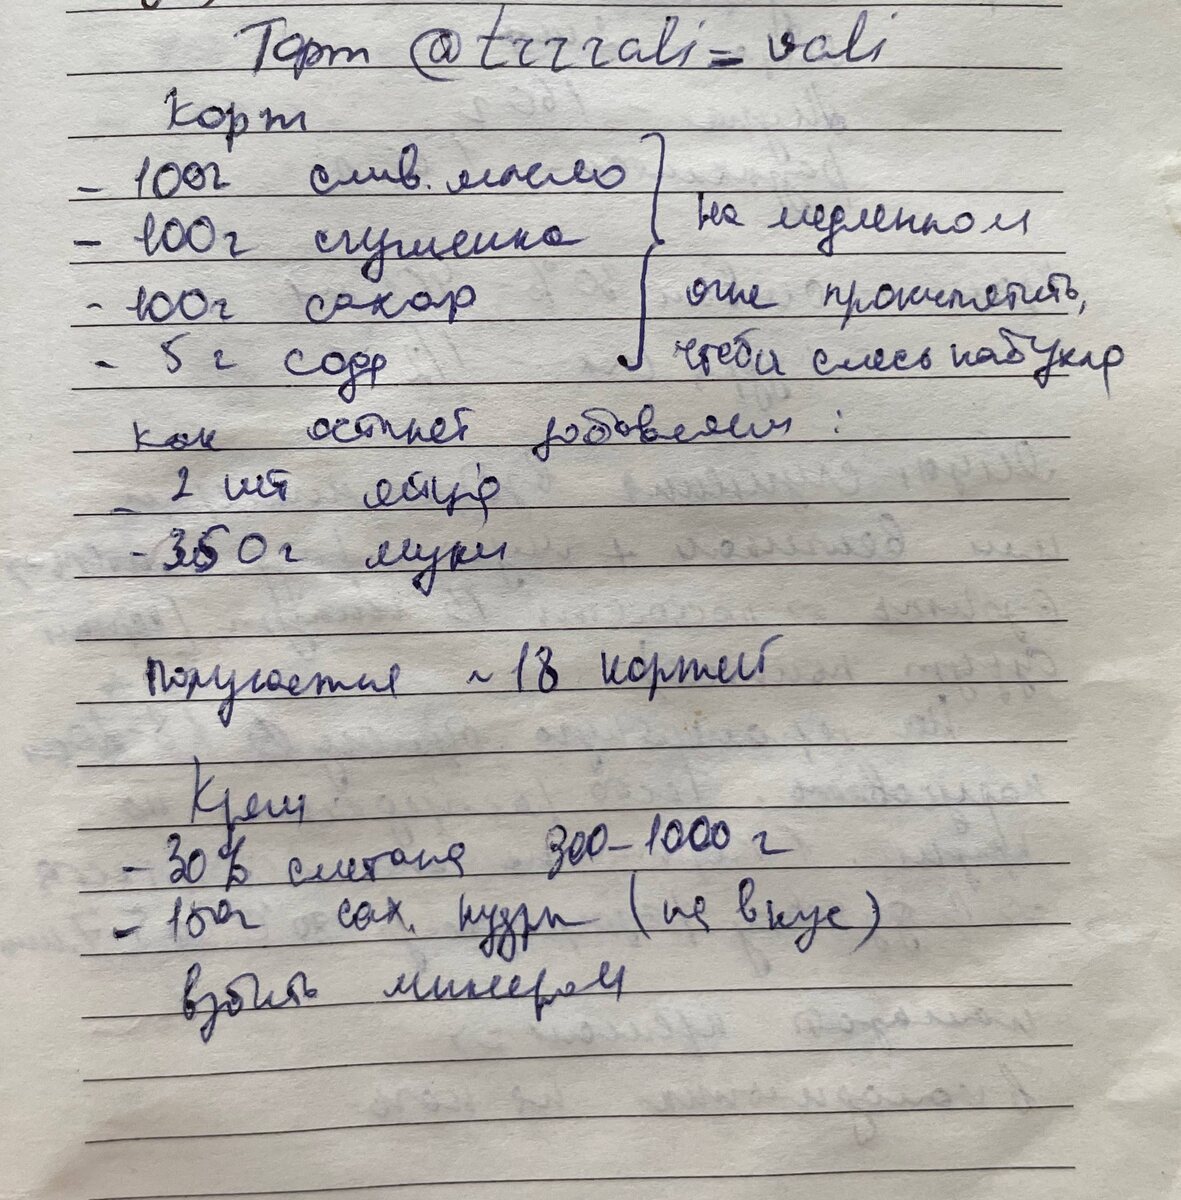 Торт @trrrali=vali
Корж
- 100г слив. масло
- 100г сгущенка
- 100г сахар
- 5 г соды
на медленном
огне прокипятить,
чтобы смесь набухла
как остынет добавляем:
- 2 шт яйца
- 350г муки
Получается ~ 18 коржей
Крем
- 30% сметана 300-1000 г
- 150г сах. пудры (на вкус)
взбить миксером